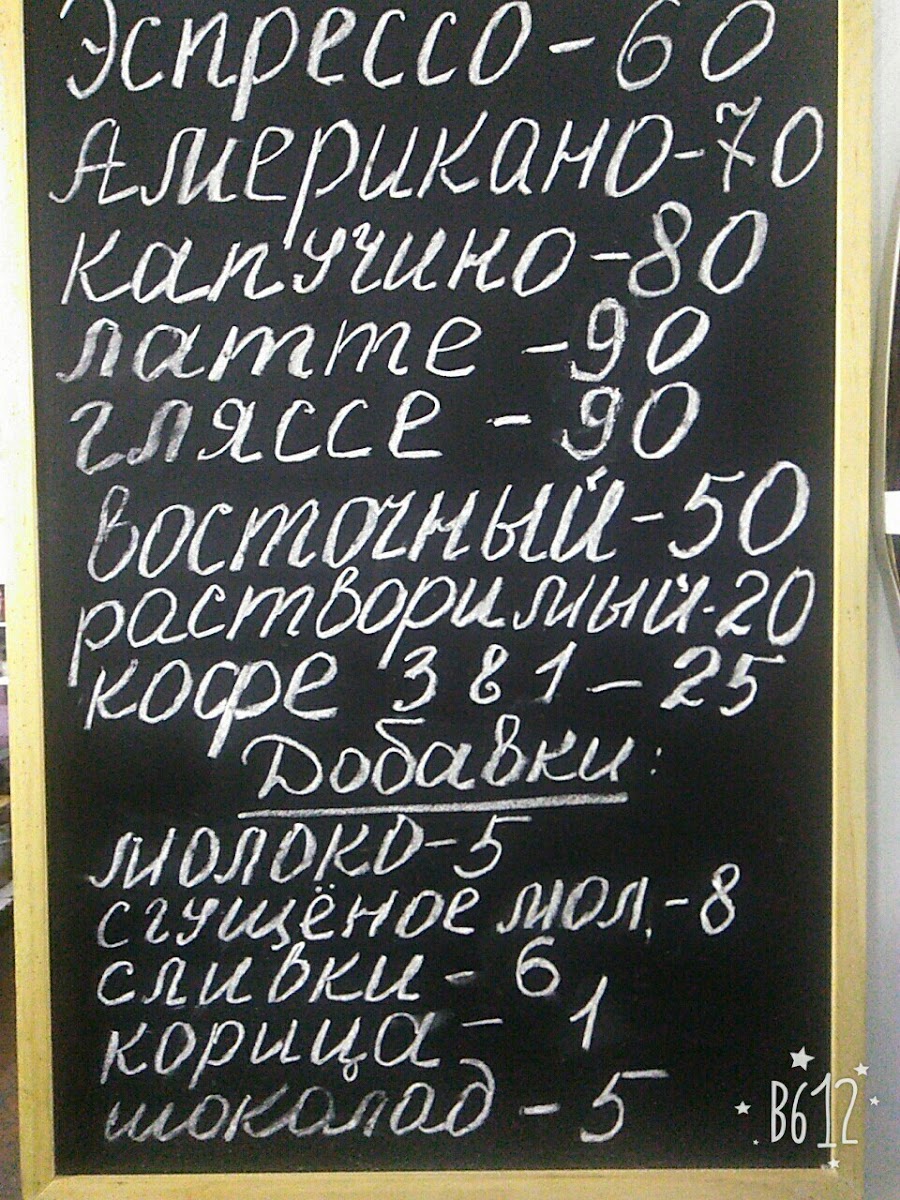 Эспрессо - 60
Американо - 70
капучино - 80
латте - 90
гляссе - 90
восточный - 50
растворимый - 20
кофе 3 в 1 - 25
Добавки:
молоко - 5
сгущёное мол. - 8
сливки - 6
корица - 1
шоколад - 5
B612